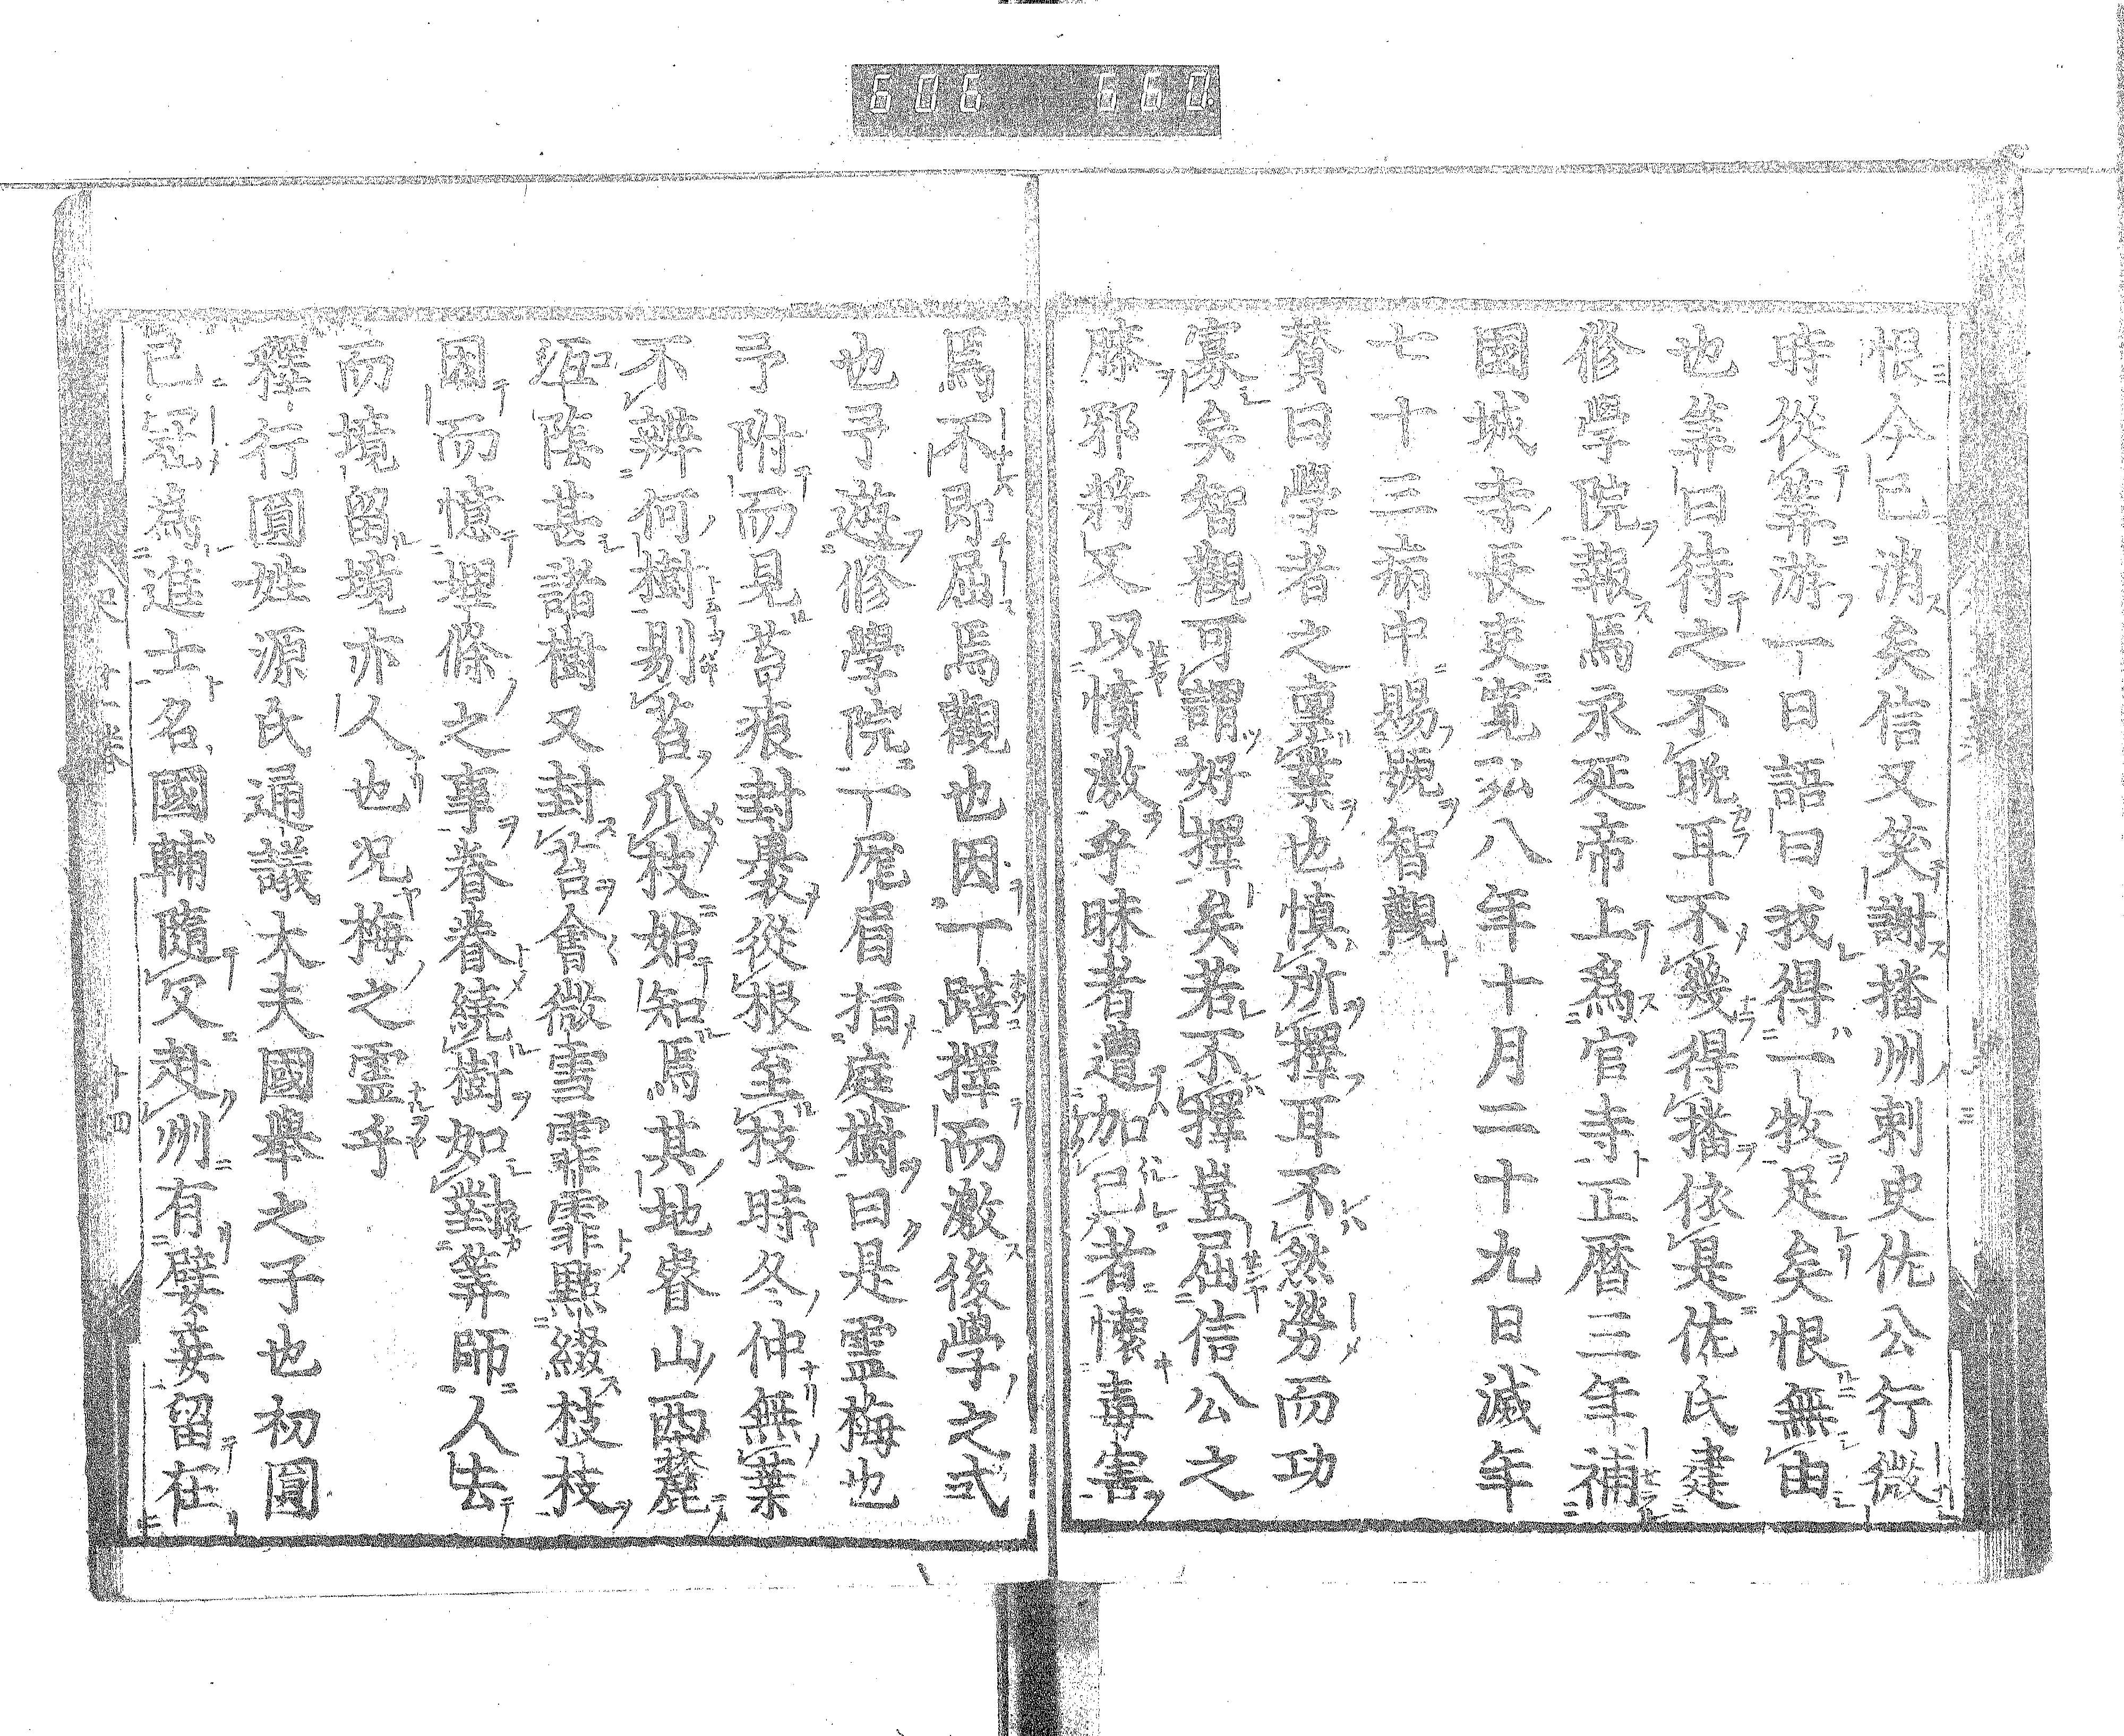 606 660
恨今已消矣信又笑謝播州刺史佐公行微
時從筭游一日語曰我得一牧足矣恨無由
也筭曰待之不晩耳不幾得播依是佐氏建
修學院報焉永延帝上爲官寺正暦三年補
園城寺長吏寛弘八年十月二十九日滅年
七十三病中賜號智觀
賛曰學者之禀業也慎所擇耳不然勞而功
寡矣智觀可謂好擇矣若不擇豈屈信公之
膝邪將又以憤激乎昧者遭加己者懷毒害
焉不即屈焉觀也因一踣擇而激後學之式
也予遊修學院一厖眉指庭樹曰是霊梅也
予附而見苔痕封裹從根至枝時冬仲無葉
不辨何樹剔苔爪枝始知焉其地睿山西麓
陰甚諸樹又封苔會微雪霏霏點綴枝枝
因而憶埋條之事眷眷繞樹如對筭師人去
而境留境亦人也况梅之霊乎
釋行圓姓源氏通議大夫國舉之子也初圓
已冠為進士名國輔隨父赴州有嬖妾留在
十四